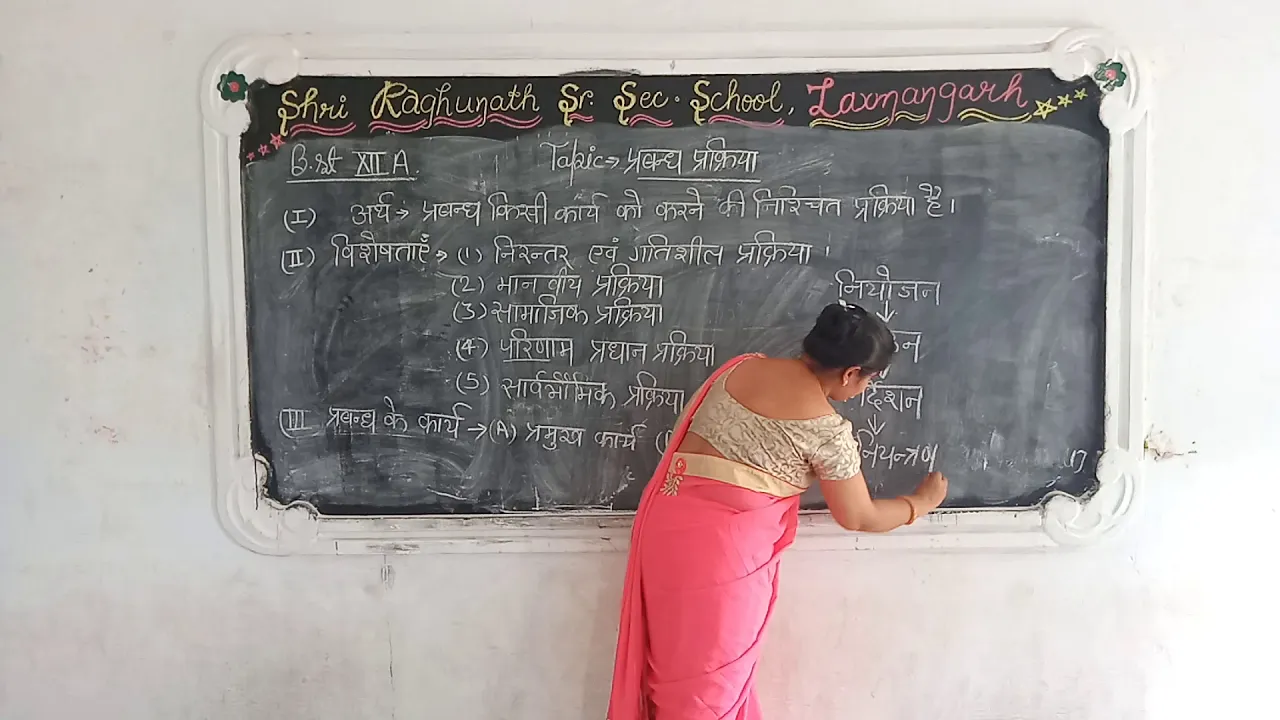 Shri Raghunath Sr. Sec. School, Laxmangarh
B.st XII A.
Topic → प्रबन्ध प्रक्रिया
(I) अर्थ → प्रबन्ध किसी कार्य को करने की निश्चित प्रक्रिया है।
(II) विशेषताएँ → (1) निरन्तर एवं गतिशील प्रक्रिया।
(2) मानवीय प्रक्रिया
(3) सामाजिक प्रक्रिया
(4) परिणाम प्रधान प्रक्रिया
(5) सार्वभौमिक प्रक्रिया
(III) प्रबन्ध के कार्य → (A) प्रमुख कार्य
नियोजन
↓
↓
नियन्त्रण